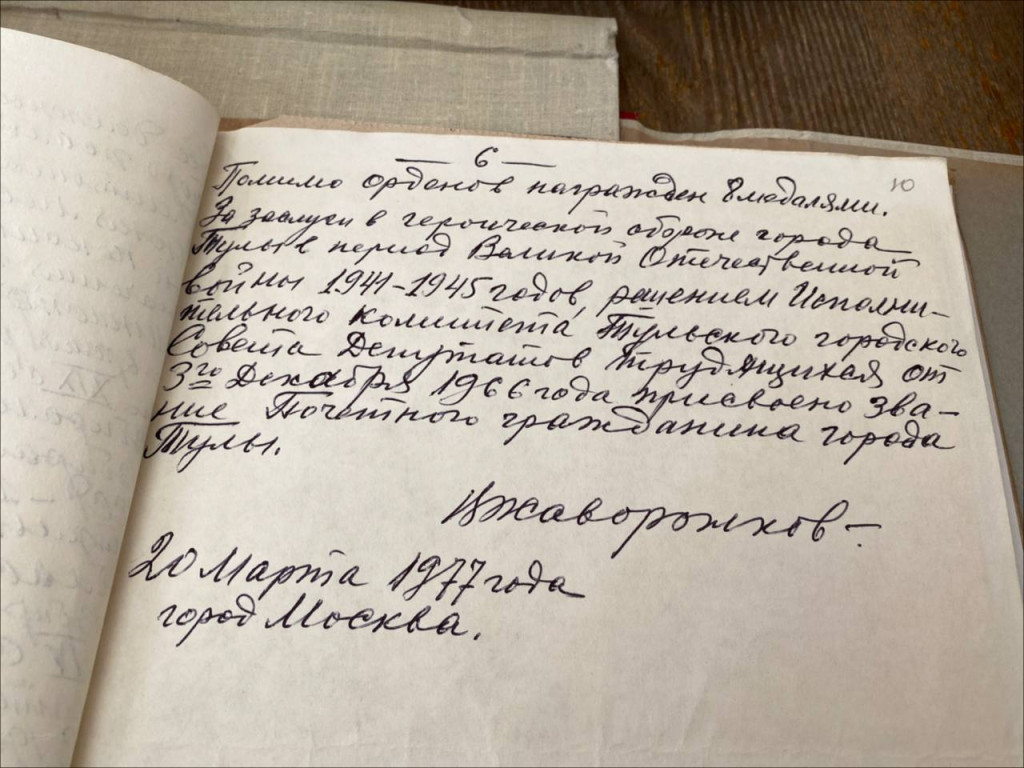 — 6 —
10
Помимо орденов награжден 8 медалями.
За заслуги в героической обороне города
Тулы в период Великой Отечественной
войны 1941-1945 годов, решением Исполни-
тельного комитета Тульского городского
Совета Депутатов Трудящихся от
3го Декабря 1966 года присвоено зва-
ние Почетного гражданина города
Тулы.
ВЖаворонков -
20 Марта 1977 года
город Москва.
XIX
IX